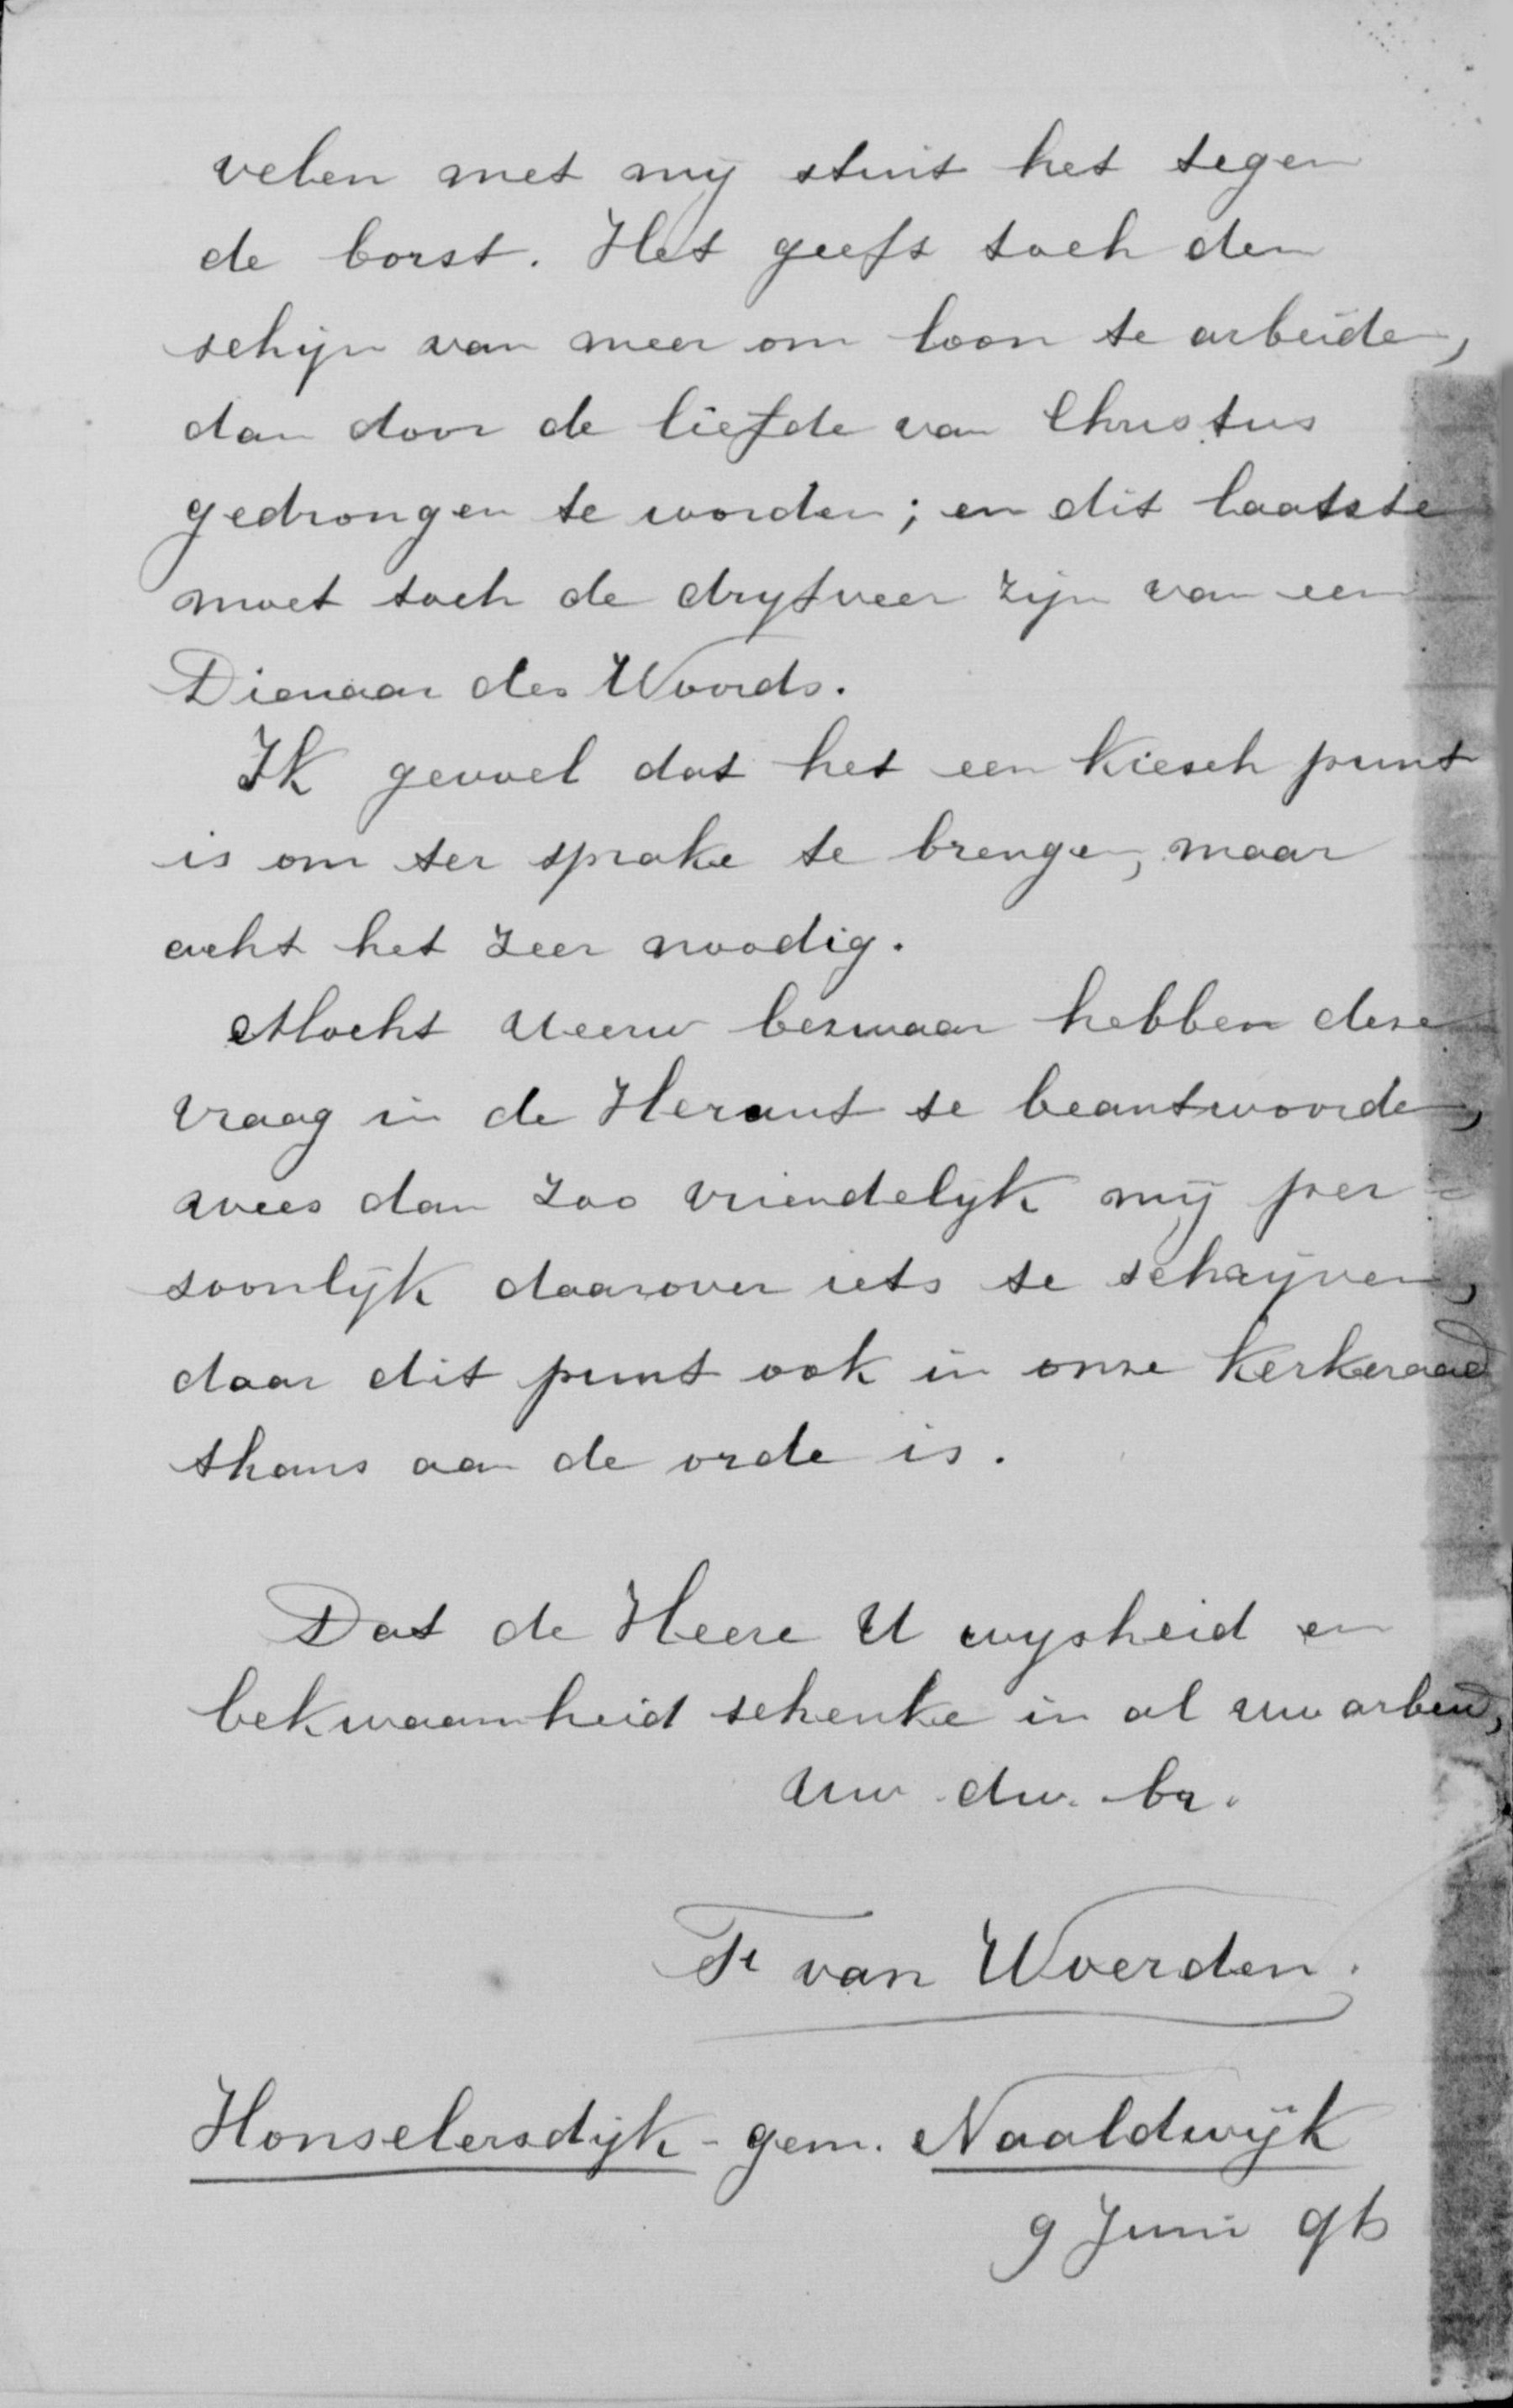 velen met mij stuit het tegen
de borst. Het geeft toch den
schijn van meer om loon te arbeiden,
dan door de liefde van Christus
gedrongen te worden; en dit laatste
moet toch de dryfveer zijn van een
Dienaar des Woords.
Ik gevoel dat het een kiesch punt
is om ter sprake te brengen, maar
acht het zeer noodig.
Mocht Ueerw bezwaar hebben deze
vraag in de Heraut te beantwoorden,
wees dan zoo vriendelyk mij per-
soonlijk daarover iets te schrijven,
daar dit punt ook in onze Kerkeraad
thans aan de orde is.
Dat de Heere U wysheid en
bekwaamheid schenke in al uw arbeid,
Uw dw. br.
F van Woerden.
Honselersdijk - gem. Naaldwijk
9 Juni 96